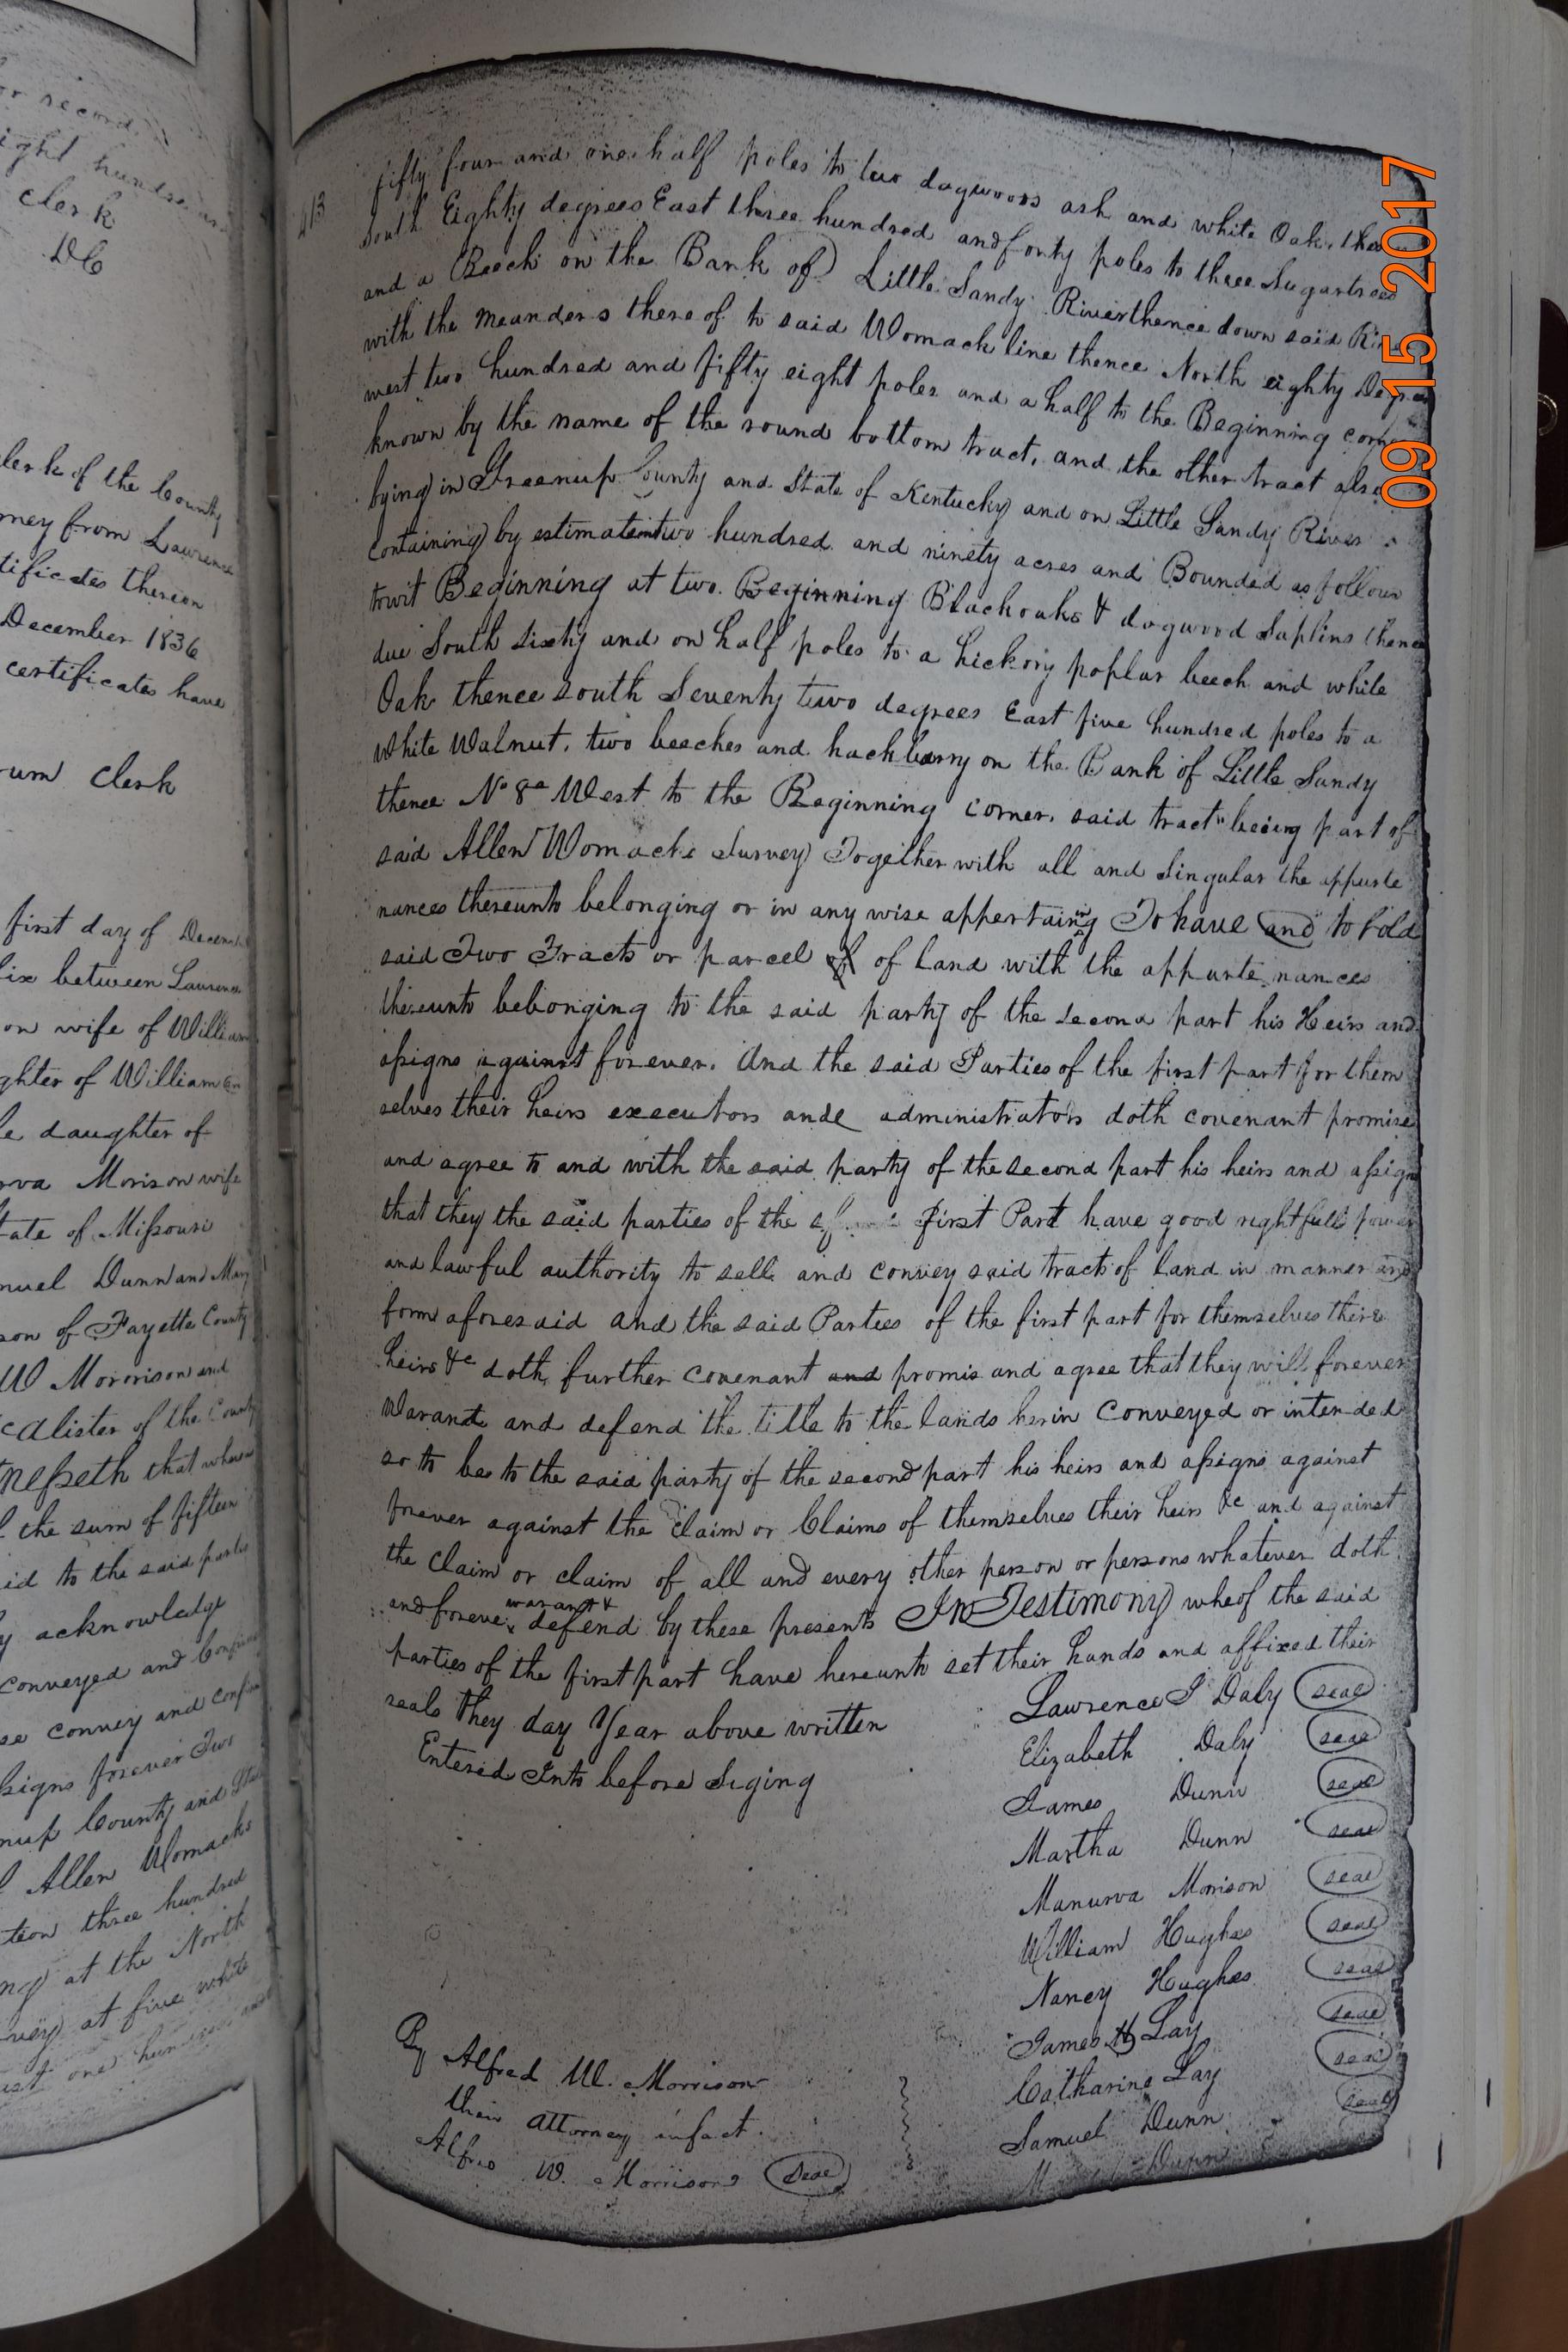 or record
ight hundred
clerk
DC
lerk of the County
rney from Lawrence
tificates thereon
December 1836
certificates have
rum Clerk
first day of Decem
ix between Lawrence
on wife of William
ghter of William
le daughter of
rva Morison wife
tate of Missouri
nuel Dunn and Mary
son of Fayette County
W Morrison and
cAlister of the County
tnesseth that where
the sum of fifteen
id to the said partie
y acknowledge
conveyed and
se convey and confi
signs forever Two
nup County and
Allen Womacks
tion three hundred
ng at the North
vey at five white
st one hundred and
413
fifty four and one half poles to two dogwoods ash and white Oak, then
South Eighty degrees East three hundred and forty poles to three Sugartrees
and a Beech on the Bank of Little Sandy River thence down said Riv
with the meanders there of to said Womack line thence North eighty Degree
west two hundred and fifty eight poles and a half to the Beginning corn
known by the name of the round bottom tract, and the other tract also
lying in Greenup County and State of Kentucky and on Little Sandy River
containing by estimation two hundred and ninety acres and Bounded as follows
towit Beginning at two Beginning Blackoaks & dogwood Saplins thence
due South Sixty and on half poles to a hickory poplar beech and white
Oak thence South Seventy two degrees East five hundred poles to a
White Walnut, two beeches and hackberry on the Bank of Little Sandy
thence No 80 West to the Beginning corner, said tract being part of
said Allen Womacks Survey Together with all and Singular the appurte
nances thereunto belonging or in any wise appertaining To have and to hold
said Two Tracts or parcel of of land with the appurtenances
thereunto belonging to the said party of the second part his Heirs and
assigns against forever. And the said Parties of the first part for them
selves their heirs executors ande administrators doth covenant promise
and agree to and with the said party of the second part his heirs and assigns
that they the said parties of the first Part have good right full power
and lawful authority to sell and convey said tracts of land in manner and
form aforesaid and the said Parties of the first part for themselves there
heirs &c doth further covenant and promis and agree that they will forever
Warant and defend the title to the lands herin conveyed or intended
so to be to the said party of the second part his heirs and assigns against
forever against the claim or Claims of themselves their heirs &c and against
the claim or claim of all and every other person or persons whatever doth
and forever warant & defend by these presents In Testimony wheof the said
parties of the first part have hereunto set their hands and affixed their
seals they day Year above written
Entered Into before Siging
Lawrence I Daly seal
Elizabeth Daly seal
James Dunn seal
Martha Dunn seal
Manurva Morrison seal
William Hughes seal
Nancy Hughes seal
James H Lay seal
Catharine Lay seal
Samuel Dunn seal
Dunn
By Alfred W. Morrison
their attorney infact.
Alfred W. Morrison seal
09 15 2017